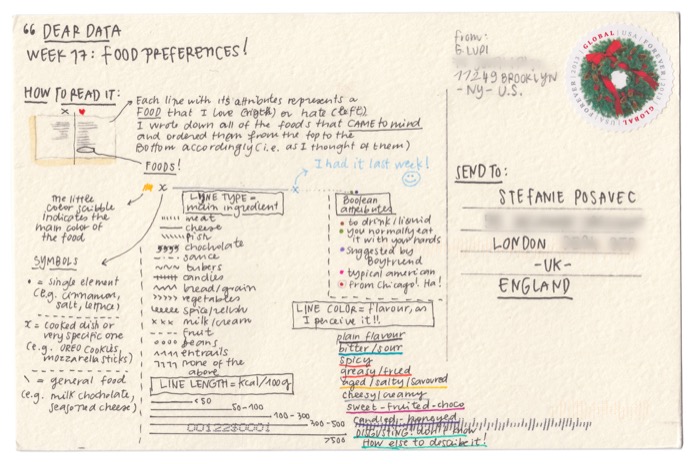 DEAR DATA
WEEK 17: FOOD PREFERENCES!
HOW TO READ IT:
Each line with its attributes represents a
FOOD that I love (right) or hate (left).
I wrote down all of the foods that CAME TO mind
and ordered them from the top to the
Bottom accordingly (i.e. as I thought of them)
FOODS!
I had it last week!
The little
color scribble
Indicates the
main color of
the food
SYMBOLS
• = single element
(e.g. cinnamon,
salt, lettuce)
X = cooked dish or
very specific one
(e.g. OREO COOKIES,
mozzarella sticks)
\ = general food
(e.g. milk chocholate,
seasoned cheese)
LINE TYPE =
main ingredient
meat
cheese
fish
chocholate
sauce
tubers
candies
bread/grain
vegetables
spice/relish
milk/cream
fruit
beans
entrails
none of the
above
LINE LENGTH = kcal/100g
<50
50-100
100-300
300-500
>500
0012230001
Boolean
attributes
to drink/liquid
you normally eat
it with your hands
suggested by
Boyfriend
typical american
from Chicago! Ha!
LINE COLOR = flavour, as
I perceive it!!
plain flavour
bitter/sour
spicy
greasy/fried
aged/salty/savoured
cheesy/creamy
sweet-fruited-choco
candied-honeyed
DISGUSTING! don't know
How else to describe it!
from:
G. LUPI
BROOKLYN
-NY- U.S.
GLOBAL USA FOREVER 2013
SEND TO:
STEFANIE POSAVEC
LONDON
-UK-
ENGLAND